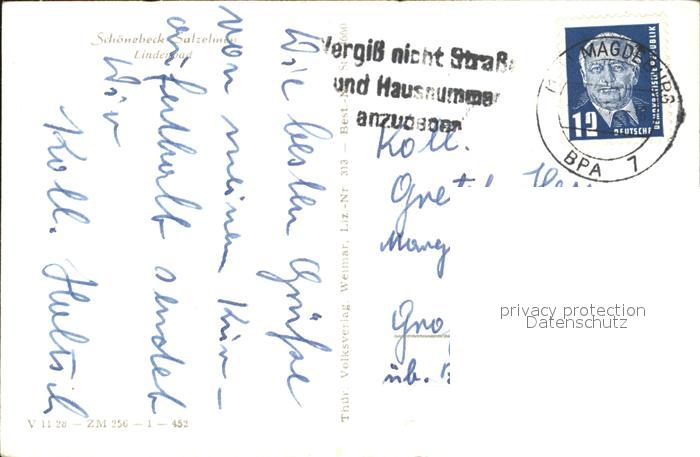 Schönebeck Salzelmen
Lindenbad
Die besten Grüße
von meinem Kur-
aufenthalt sendet
Dir
Koll.
V 11 28 – ZM 256 – 1 – 452
Thür Volksverlag Weimar, Liz.-Nr. 313 – Best.-Nr.
Vergiß nicht Straße
und Hausnummer
anzugeben
MAGDEBURG
BPA 7
12
DEUTSCHE
DEMOKRATISCHE REPUBLIK
Koll.
Gre
Marg
Gro
üb.
privacy protection
Datenschutz